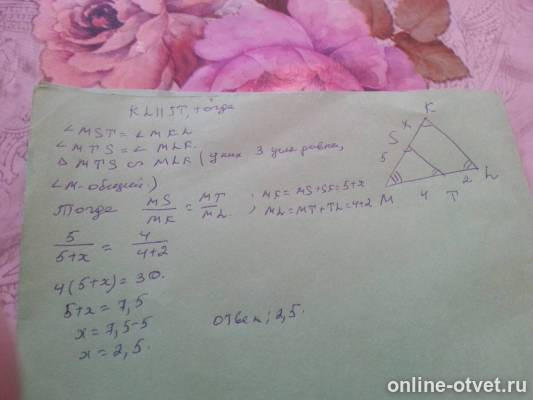 KL||ST, тогда
∠MST = ∠MKL
∠MTS = ∠MLK.
△ MTS ∾ MLK (у них 3 угла равны,
∠M-общий.)
Тогда MS/MK = MT/ML. ; MK = MS+SK = 5+x
; ML = MT+TL = 4+2
5/(5+x) = 4/(4+2)
4(5+x) = 30.
5+x = 7,5
x = 7,5-5
x = 2,5.
ответ: 2,5.
K
x
S
5
M
4
T
2
L
online-otvet.ru